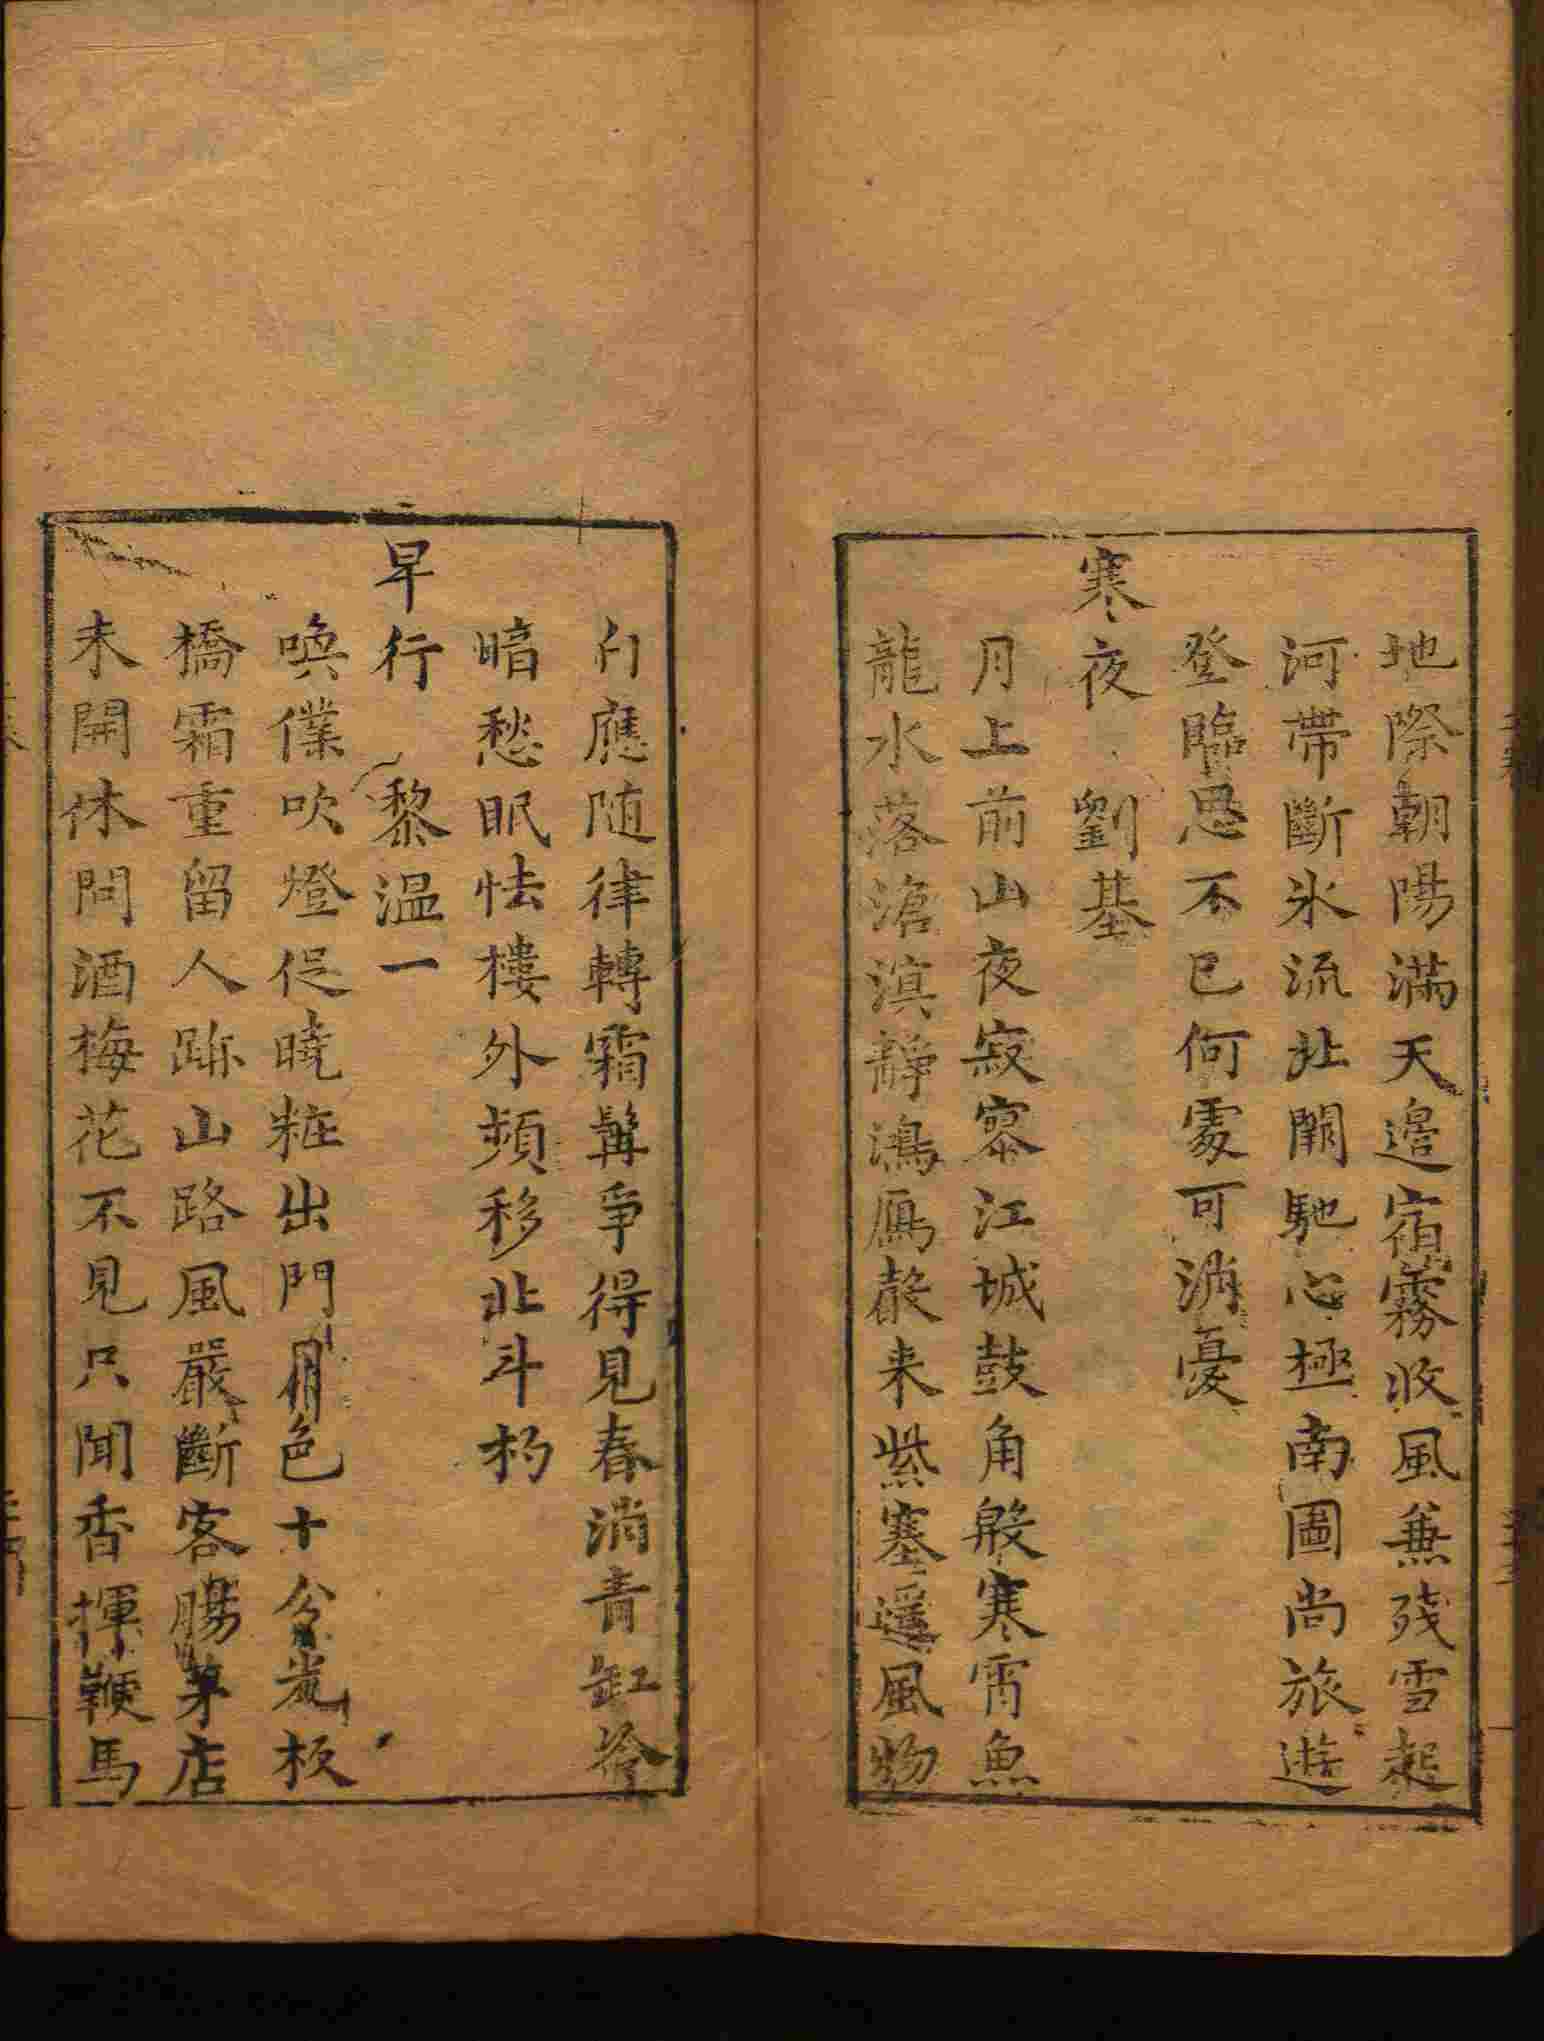 地際朝陽滿天邉宿霧收風兼残雪起
河帶斷氷流北闕馳心極南圖尚旅遊
登臨思不已何處可消憂
寒夜 劉基
月上前山夜寂寥江城鼓角殷寒宵魚
龍水落滄溟靜鴻鴈聲来紫塞遥風物
行應随律轉霜髯爭得見春消青缸爷
暗愁眠怯樓外頻移北斗杓
早行 黎温一
喚僕吹燈促曉粧出門月色十分光板
橋霜重留人跡山路風嚴斷客腸茅店
未開休問酒梅花不見只聞香揮鞭馬